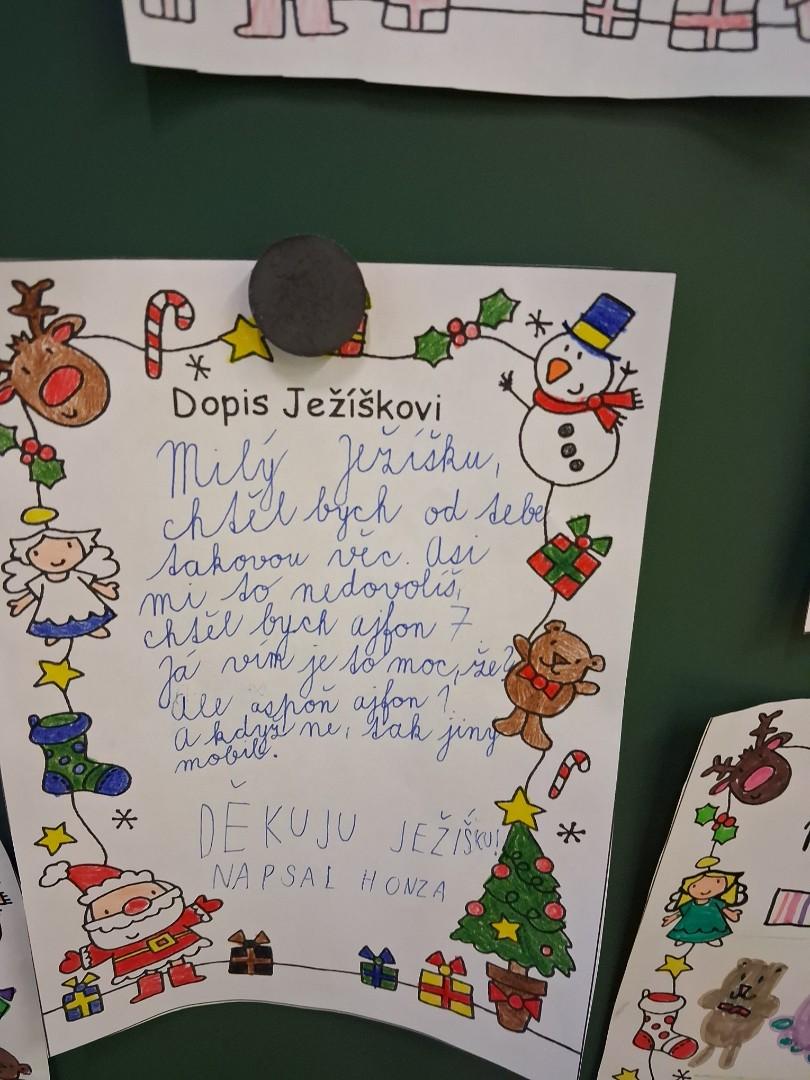 Dopis Ježíškovi
Milý Ježíšku,
chtěl bych od tebe
takovou věc. Asi
mi to nedovolíš,
chtěl bych ajfon 7
Já vím je to moc, že?
Ale aspoň ajfon 1.
A když ne, tak jiny
mobil.
DĚKUJU JEŽÍŠKU!
NAPSAL HONZA